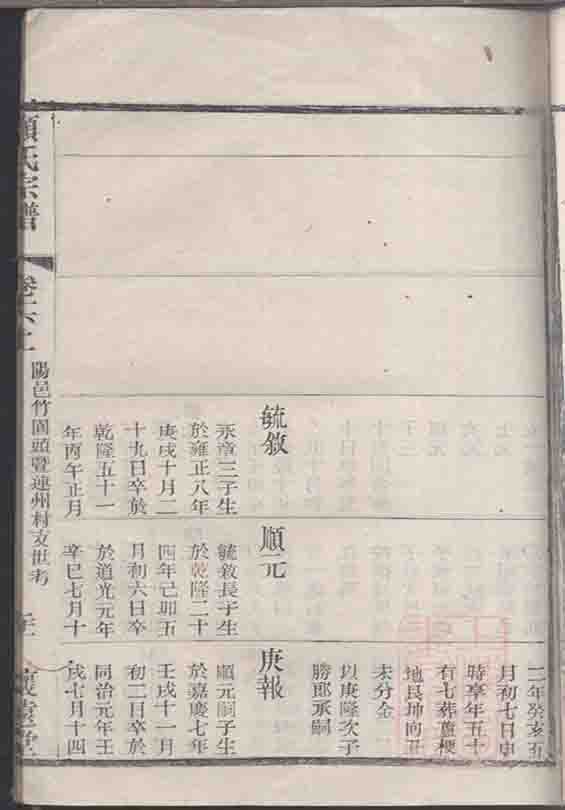 二年癸亥五
月初七日申
時享年五十
有七葬蘆梗
地艮坤向丑
未分金
以庚隆次子
勝郎承嗣
毓敘
永章三子生
於雍正八年
庚戌十月二
十九日卒於
乾隆五十一
年丙午正月
順元
毓敘長子生
於乾隆二十
四年己卯五
月初六日卒
於道光元年
辛巳七月十
庚報
順元嗣子生
於嘉慶七年
壬戌十一月
初二日卒於
同治元年壬
戌七月十四
氏宗譜
卷之六上
陽邑竹園頭暨連州村支世考